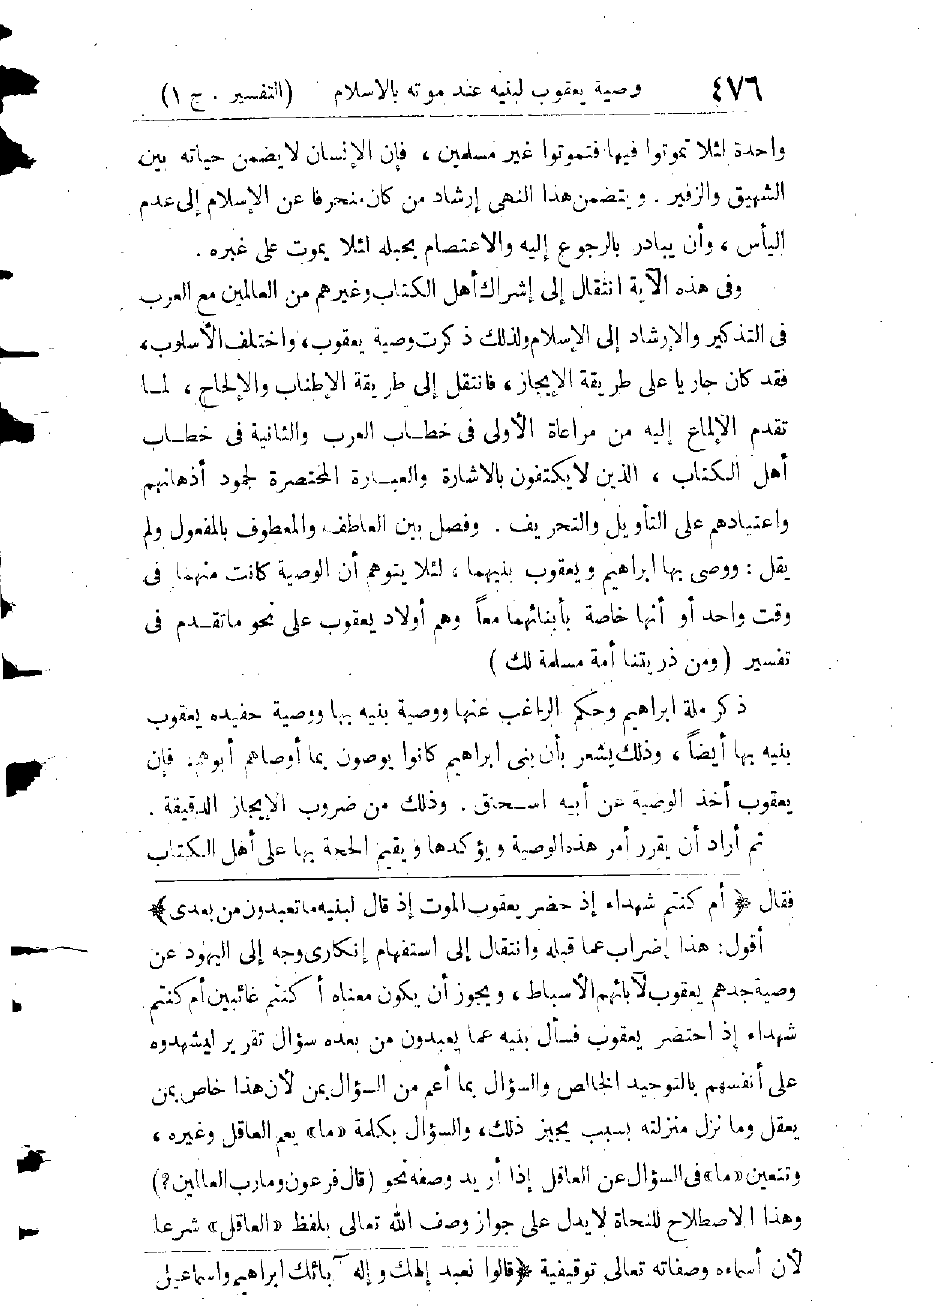 ٤٧٦ وصية يعقوب لبنيه عند موته بالاسلام (التفسير . ج ١)
واحدة لئلا تموتوا فيها فتموتوا غير مسلمين ، فإن الإنسان لا يضمن حياته بين
الشهيق والزفير . ويتضمن هذا النهى إرشاد من كان منحرفا عن الإسلام إلى عدم
اليأس ، وأن يبادر بالرجوع إليه والاعتصام بحبله لئلا يموت على غيره .
وفى هذه الآية انتقال إلى إشراك أهل الكتاب وغيرهم من العالمين مع العرب
فى التذكير والإرشاد إلى الإسلام ولذلك ذكرت وصية يعقوب، واختلف الأسلوب،
فقد كان جاريا على طريقة الإيجاز ، فانتقل إلى طريقة الإطناب والإلحاح ، لما
تقدم الإلماع إليه من مراعاة الأولى فى خطاب العرب والثانية فى خطاب
أهل الكتاب ، الذين لا يكتفون بالاشارة والعبارة المختصرة لجمود أذهانهم
واعتيادهم على التأويل والتحريف . وفصل بين العاطف والمعطوف بالمفعول ولم
يقل : ووصى بها ابراهيم ويعقوب بنيهما ، لئلا يتوهم أن الوصية كانت منهما فى
وقت واحد أو أنها خاصة بأبنائهما معاً وهم أولاد يعقوب على نحو ما تقدم فى
تفسير (ومن ذريتنا أمة مسلمة لك )
ذكر ملة ابراهيم وحكم الراغب عنها ووصية بنيه بها ووصية حفيده يعقوب
بنيه بها أيضاً ، وذلك يشعر بأن بنى ابراهيم كانوا يوصون بما أوصاهم أبوهم. فإن
يعقوب أخذ الوصية عن أبيه اسحق . وذلك من ضروب الإيجاز الدقيقة .
ثم أراد أن يقرر أمر هذه الوصية ويؤكدها ويقيم الحجة بها على أهل الكتاب
فقال ﴿ أم كنتم شهداء إذ حضر يعقوب الموت إذ قال لبنيه ما تعبدون من بعدى ﴾
أقول : هذا إضراب عما قبله وانتقال إلى استفهام إنكارى وجه إلى اليهود عن
وصية جدهم يعقوب لآبائهم الأسباط ، ويجوز أن يكون معناه أكنتم غائبين أم كنتم
شهداء إذ احتضر يعقوب فسأل بنيه عما يعبدون من بعده سؤال تقرير ليشهدوه
على أنفسهم بالتوحيد الخالص والسؤال بما أعم من السؤال بمن لأن هذا خاص بمن
يعقل وما نزل منزلته بسبب يجيز ذلك، والسؤال بكلمة «ما» يعم العاقل وغيره ،
وتتعين «ما» فى السؤال عن العاقل إذا أريد وصفه نحو (قال فرعون وما رب العالمين ؟)
وهذا الاصطلاح للنحاة لا يدل على جواز وصف الله تعالى بلفظ «العاقل» شرعا
لأن أسماءه وصفاته تعالى توقيفية ﴿ قالوا نعبد إلهك وإله آبائك ابراهيم واسماعيل